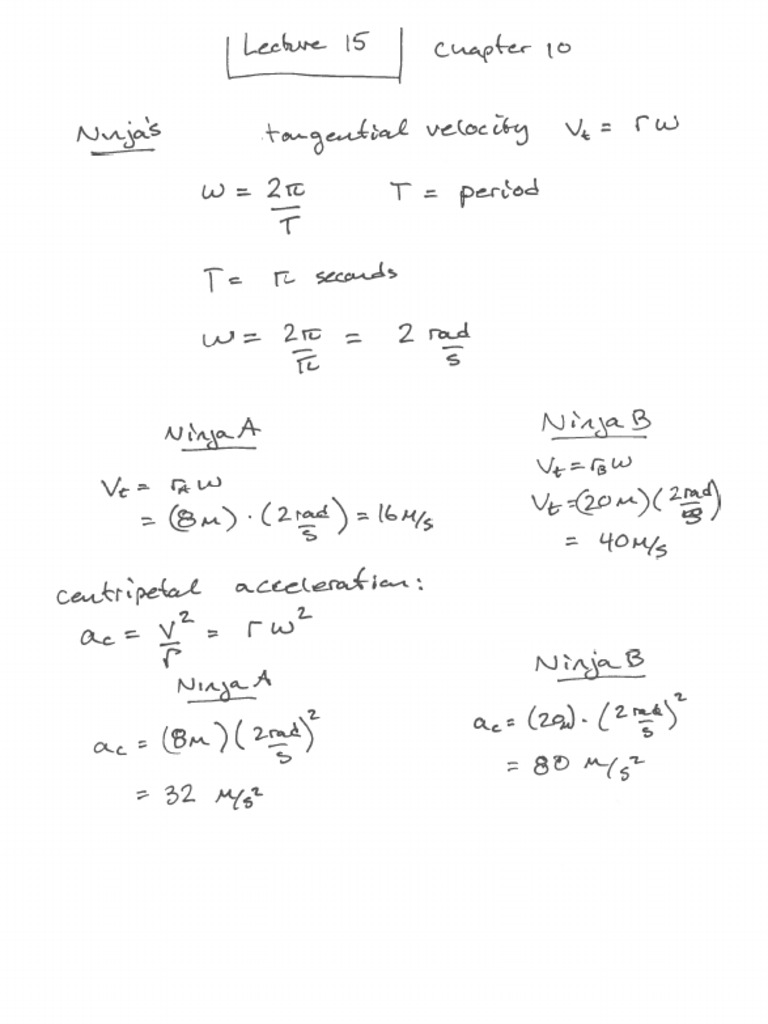 Lecture 15 Chapter 10
Ninja's tangential velocity Vt = rω
ω = 2π/T T = period
T = π seconds
ω = 2π/π = 2 rad/s
Ninja A
Vt = rAω
= (8m) · (2 rad/s) = 16 m/s
Ninja B
Vt = rBω
Vt = (20m)(2 rad/s)
= 40 m/s
centripetal acceleration:
ac = V²/r = rω²
Ninja A
ac = (8m)(2 rad/s)²
= 32 m/s²
Ninja B
ac = (20m) · (2 rad/s)²
= 80 m/s²